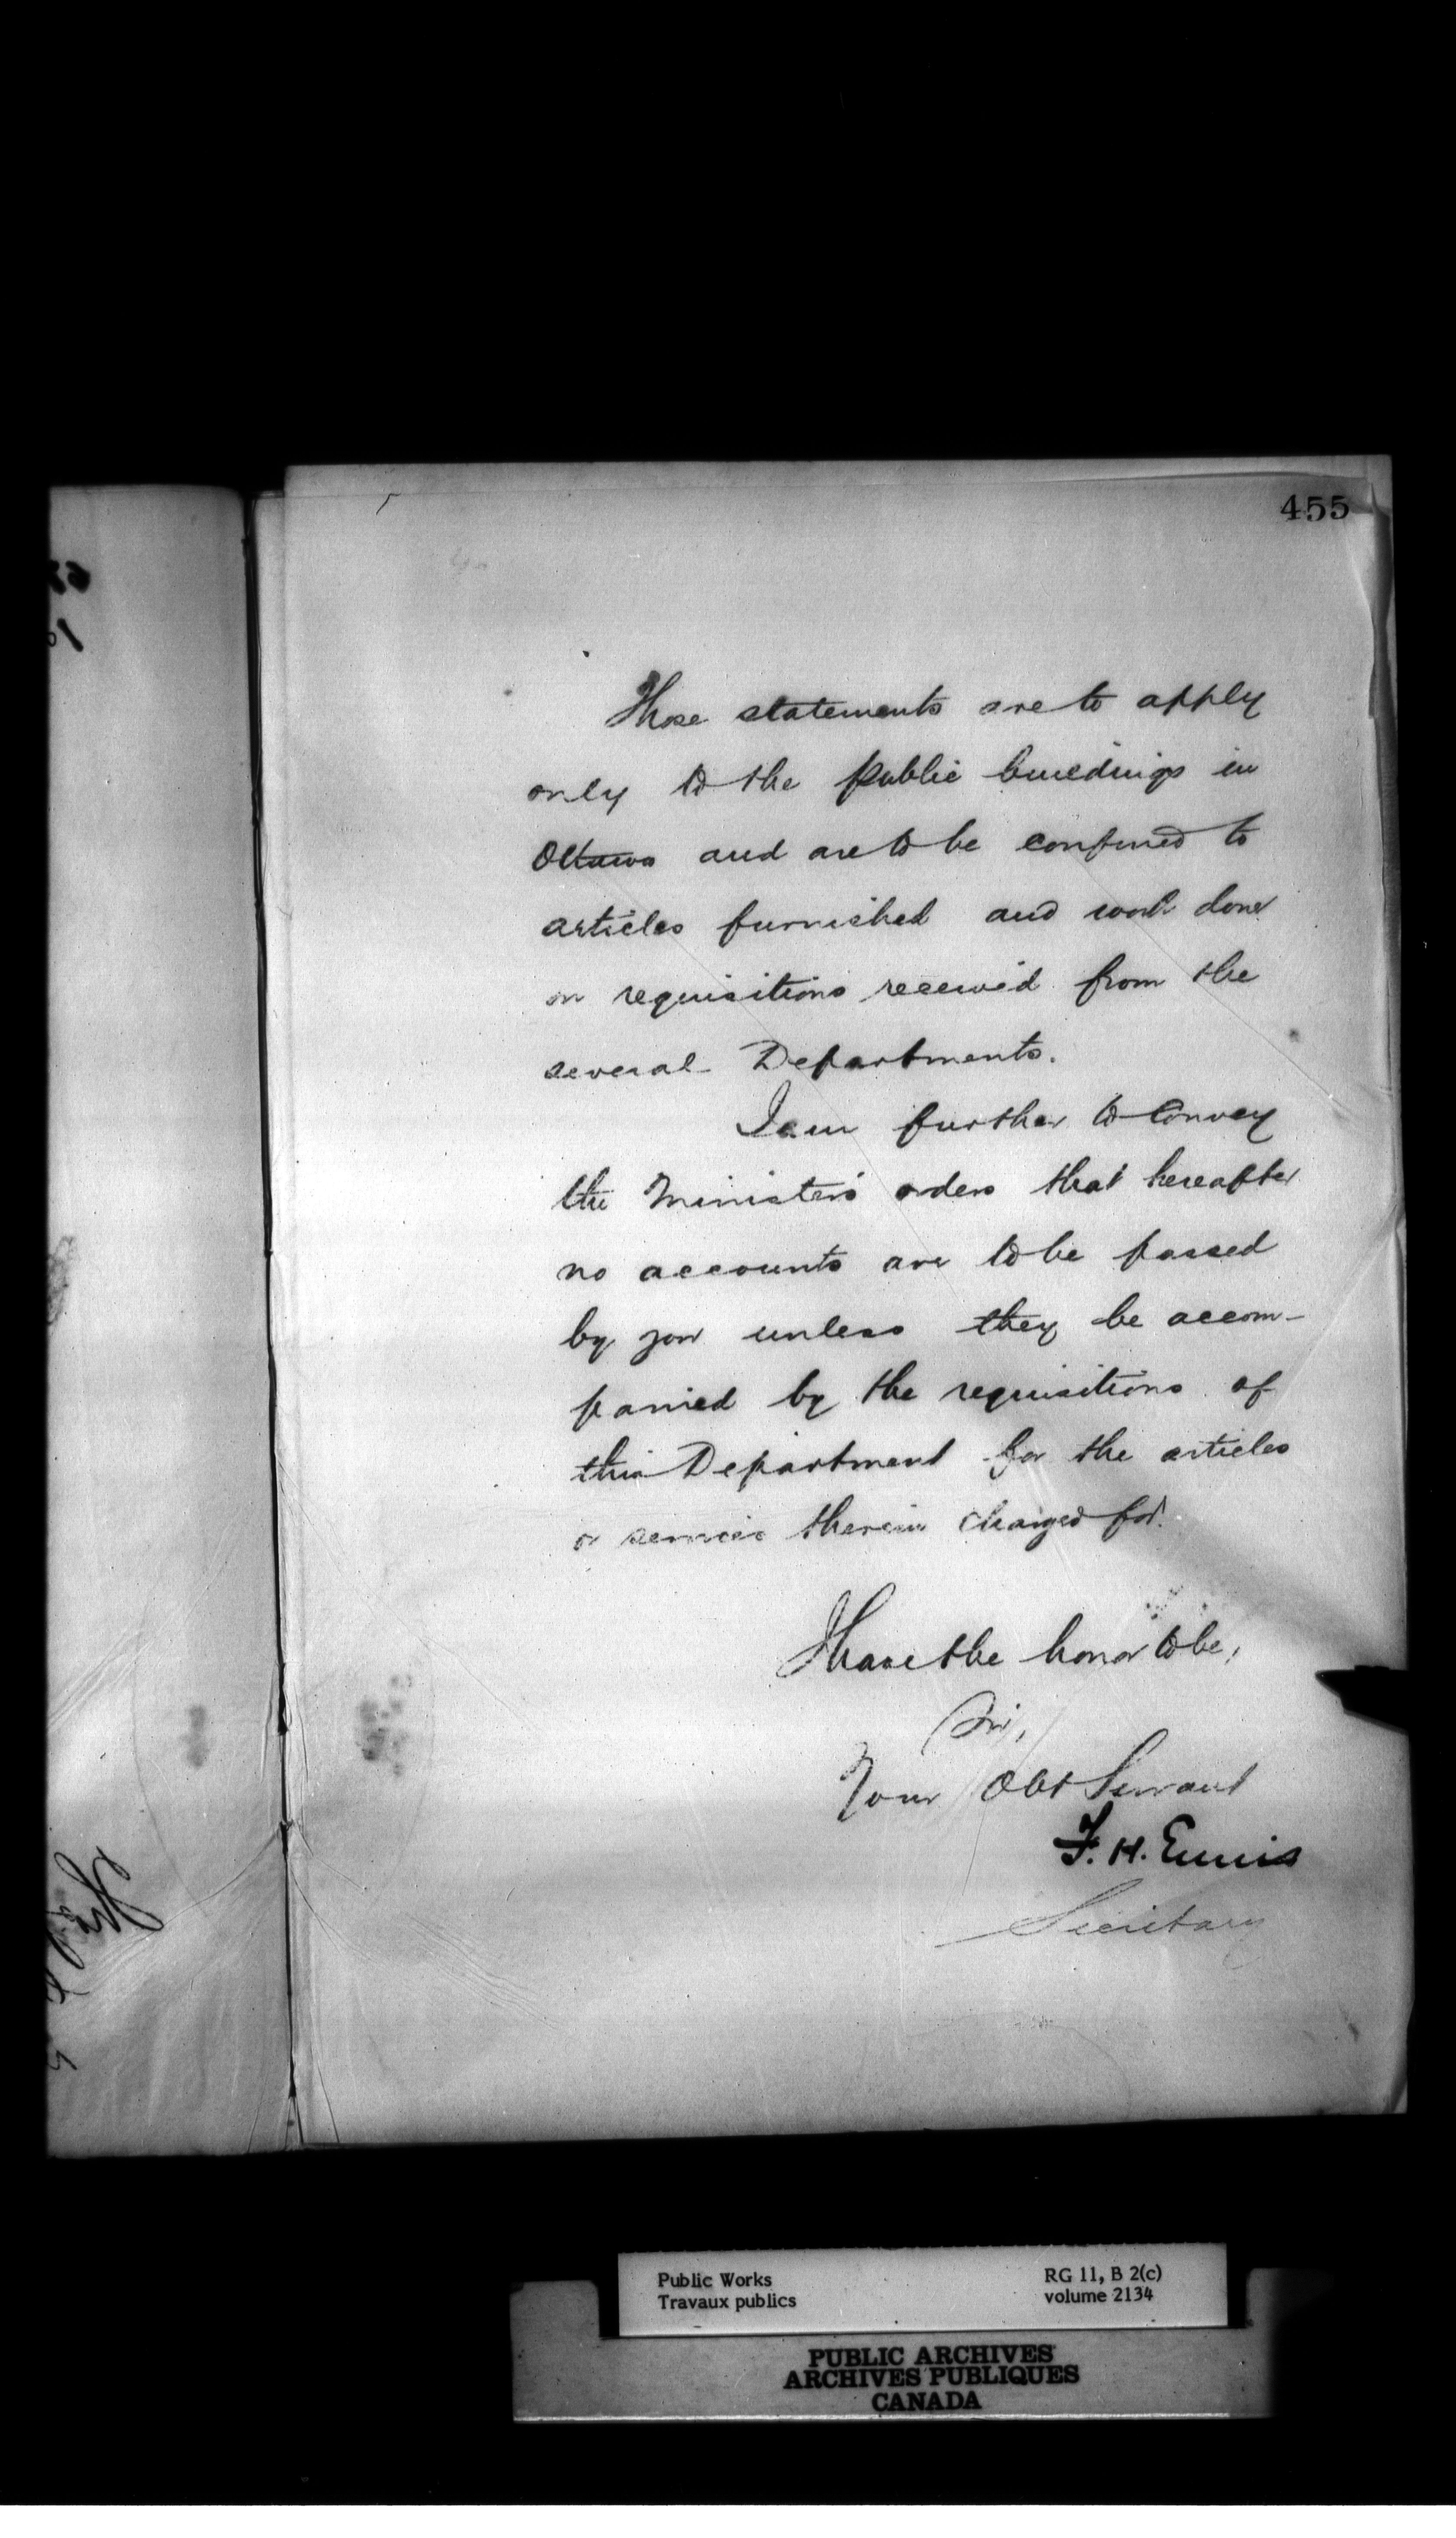 455
These statements are to apply
only to the public buildings in
Ottawa and are to be confined to
articles furnished and work done
on requisitions received from the
several Departments.
I am further to convey
the Minister's orders that hereafter
no accounts are to be passed
by you unless they be accom-
panied by the requisitions of
this Department for the articles
or services therein charged for.
I have the honor to be,
Sir,
Your Obt Servant
F. H. Ennis
Secretary
Public Works
Travaux publics
RG 11, B 2(c)
volume 2134
PUBLIC ARCHIVES
ARCHIVES PUBLIQUES
CANADA